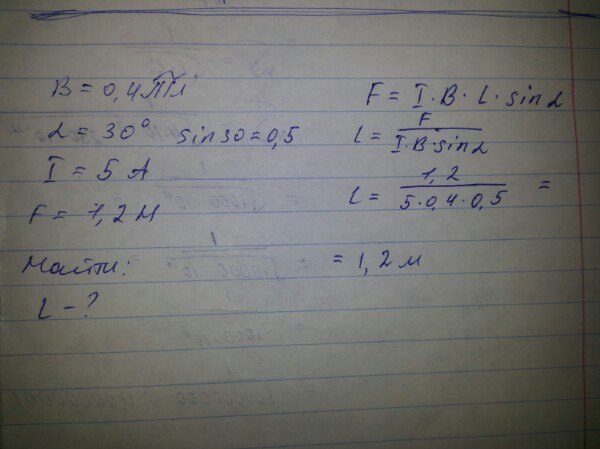 B = 0,4 Тл
α = 30° sin30 = 0,5
I = 5 А
F = 1,2 Н
Найти:
L - ?
F = I · B · L · sin α
L = F / I · B · sin α
L = 1,2 / 5 · 0,4 · 0,5 =
= 1,2 м